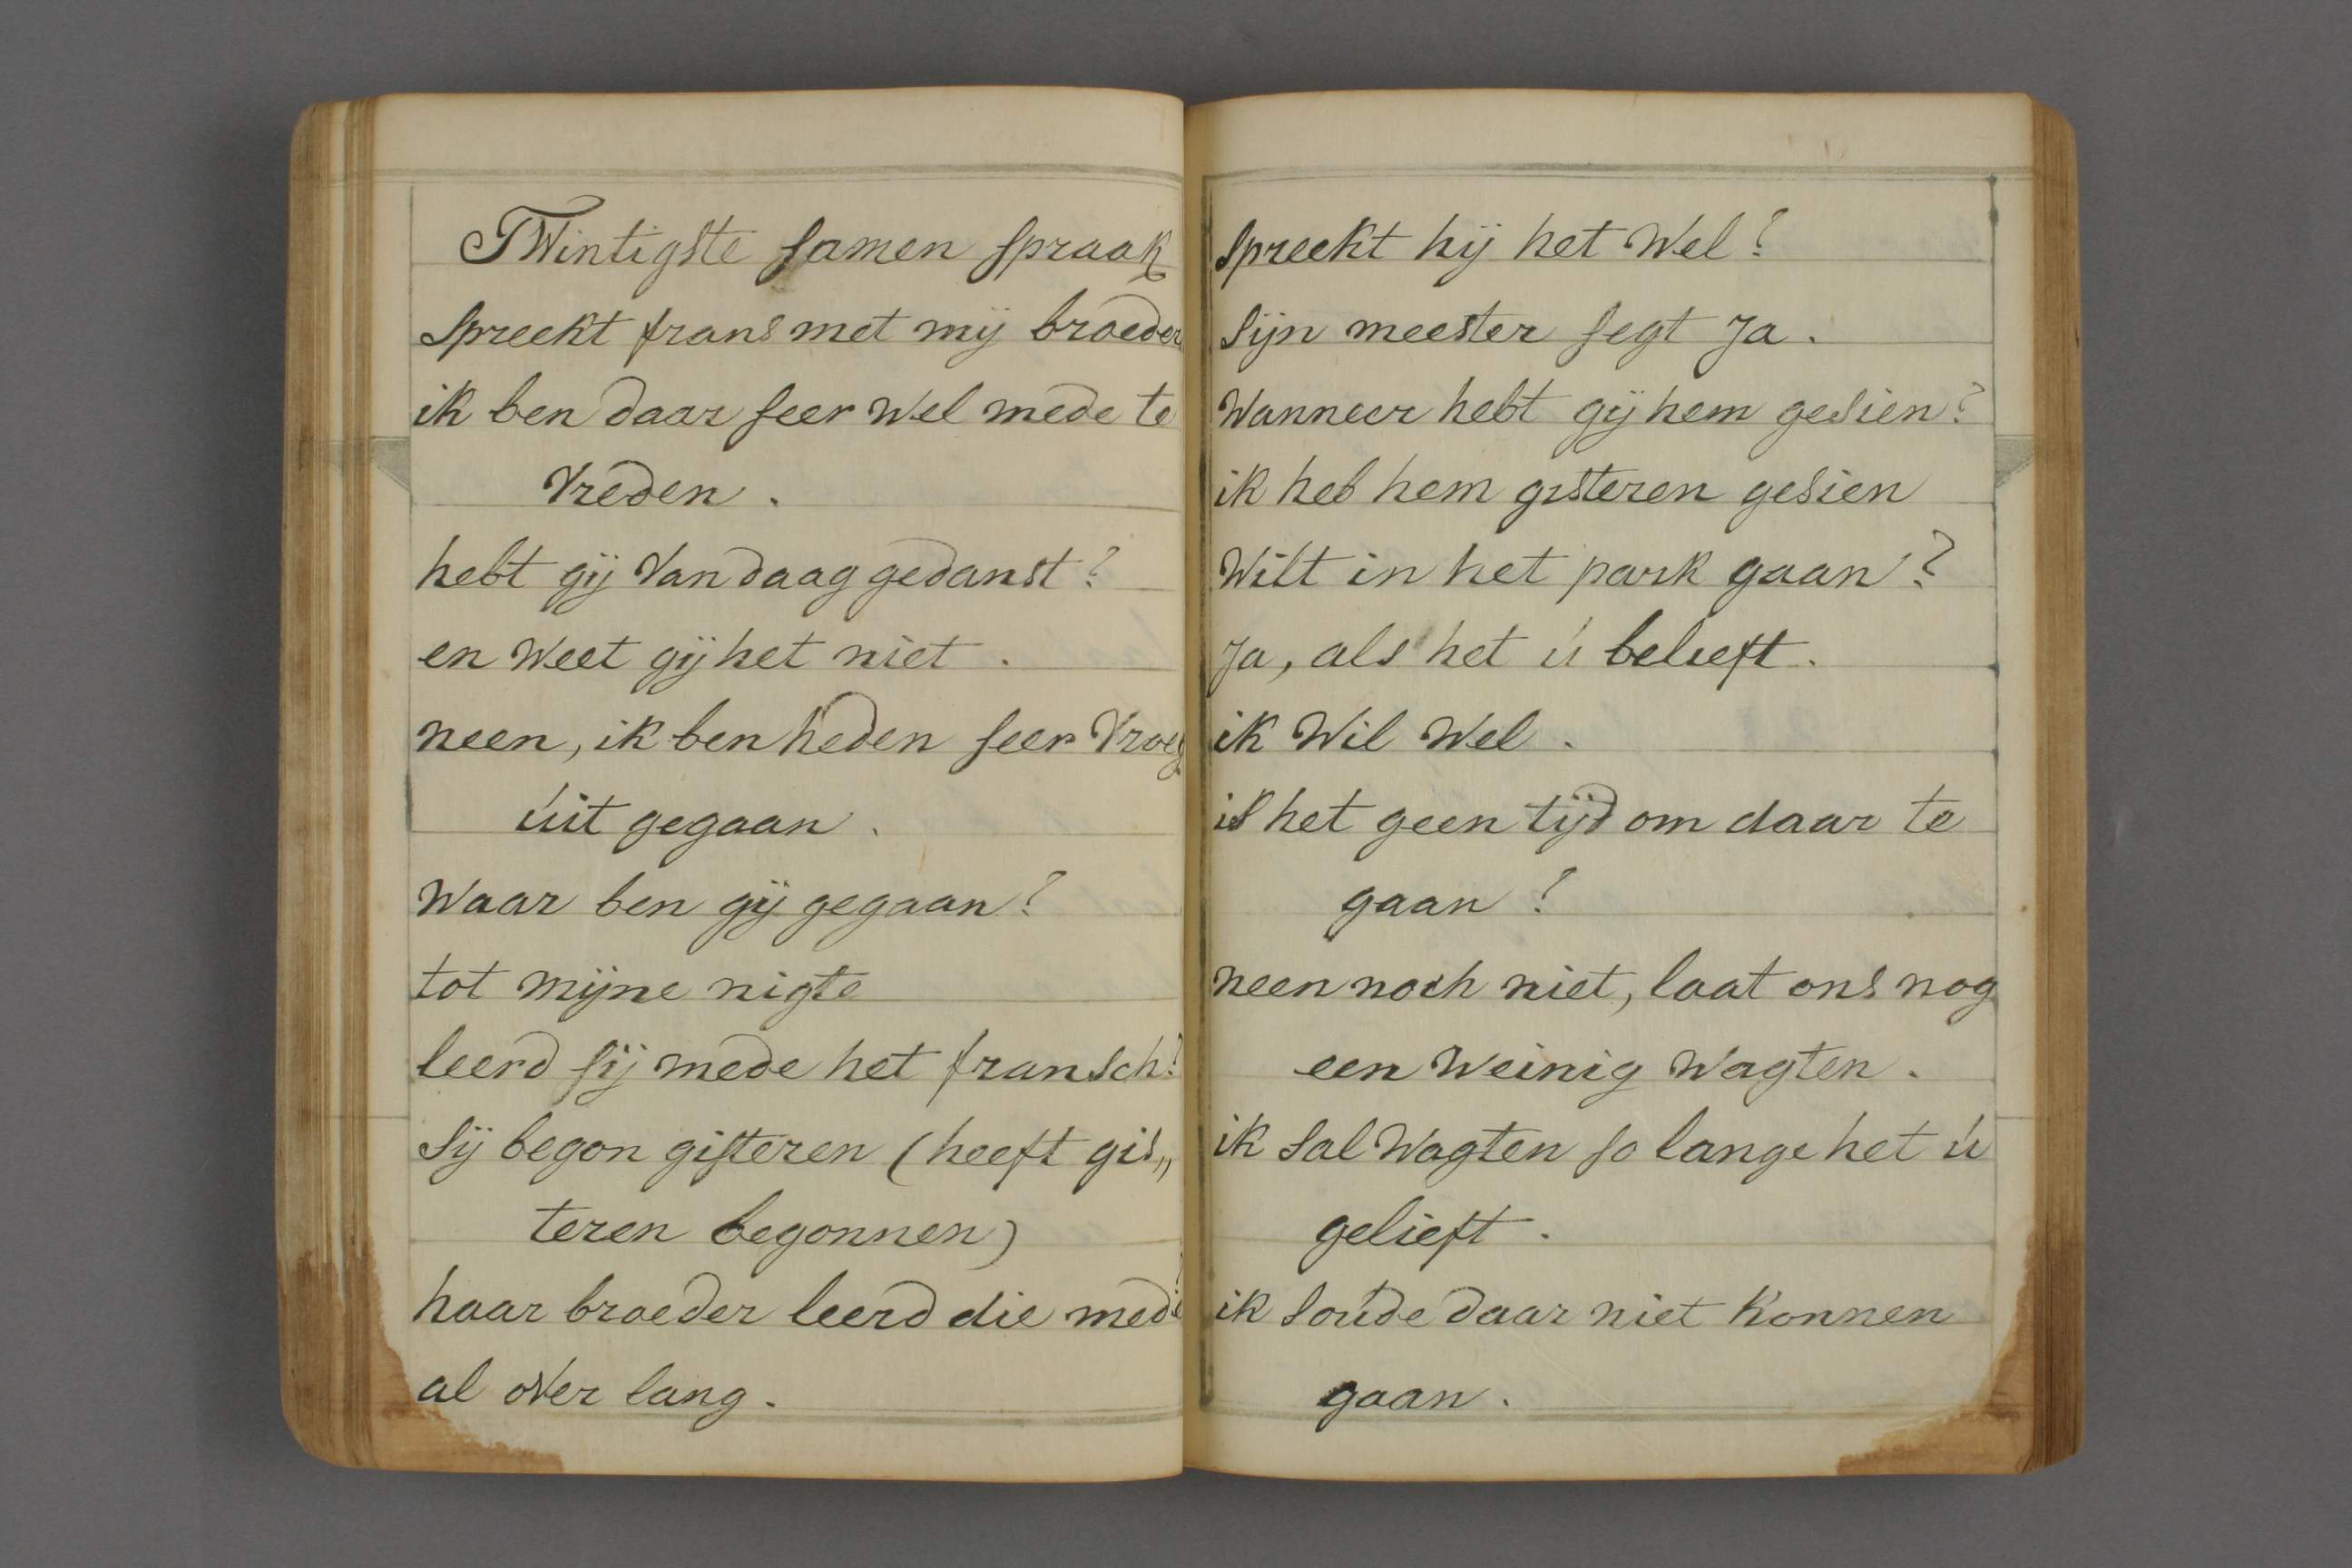 TWintigste samen spraak
Spreekt frans met mij broeder
ik ben daar seer wel mede te
Vreden.
hebt gij Van daag gedanst?
en Weet gij het niet.
neen, ik ben heden seer Vroeg
úit gegaan.
Waar ben gij gegaan?
tot mijne nigte
leerd sij mede het fransch?
Sij begon gisteren (heeft gis„
teren begonnen)
haar broeder leerd die mede
al over lang.
spreekt hij het Wel?
Sijn meester segt Ja.
Wanneer hebt gij hem gesien?
ik heb hem gisteren gesien
Wilt in het park gaan?
Ja, als het ú belieft.
ik Wil Wel.
is het geen tijd om daar te
gaan?
neen noch niet, laat ons nog
een Weinig Wagten.
ik sal Wagten so lange het ú
gelieft.
ik soúde daar niet Konnen
gaan.